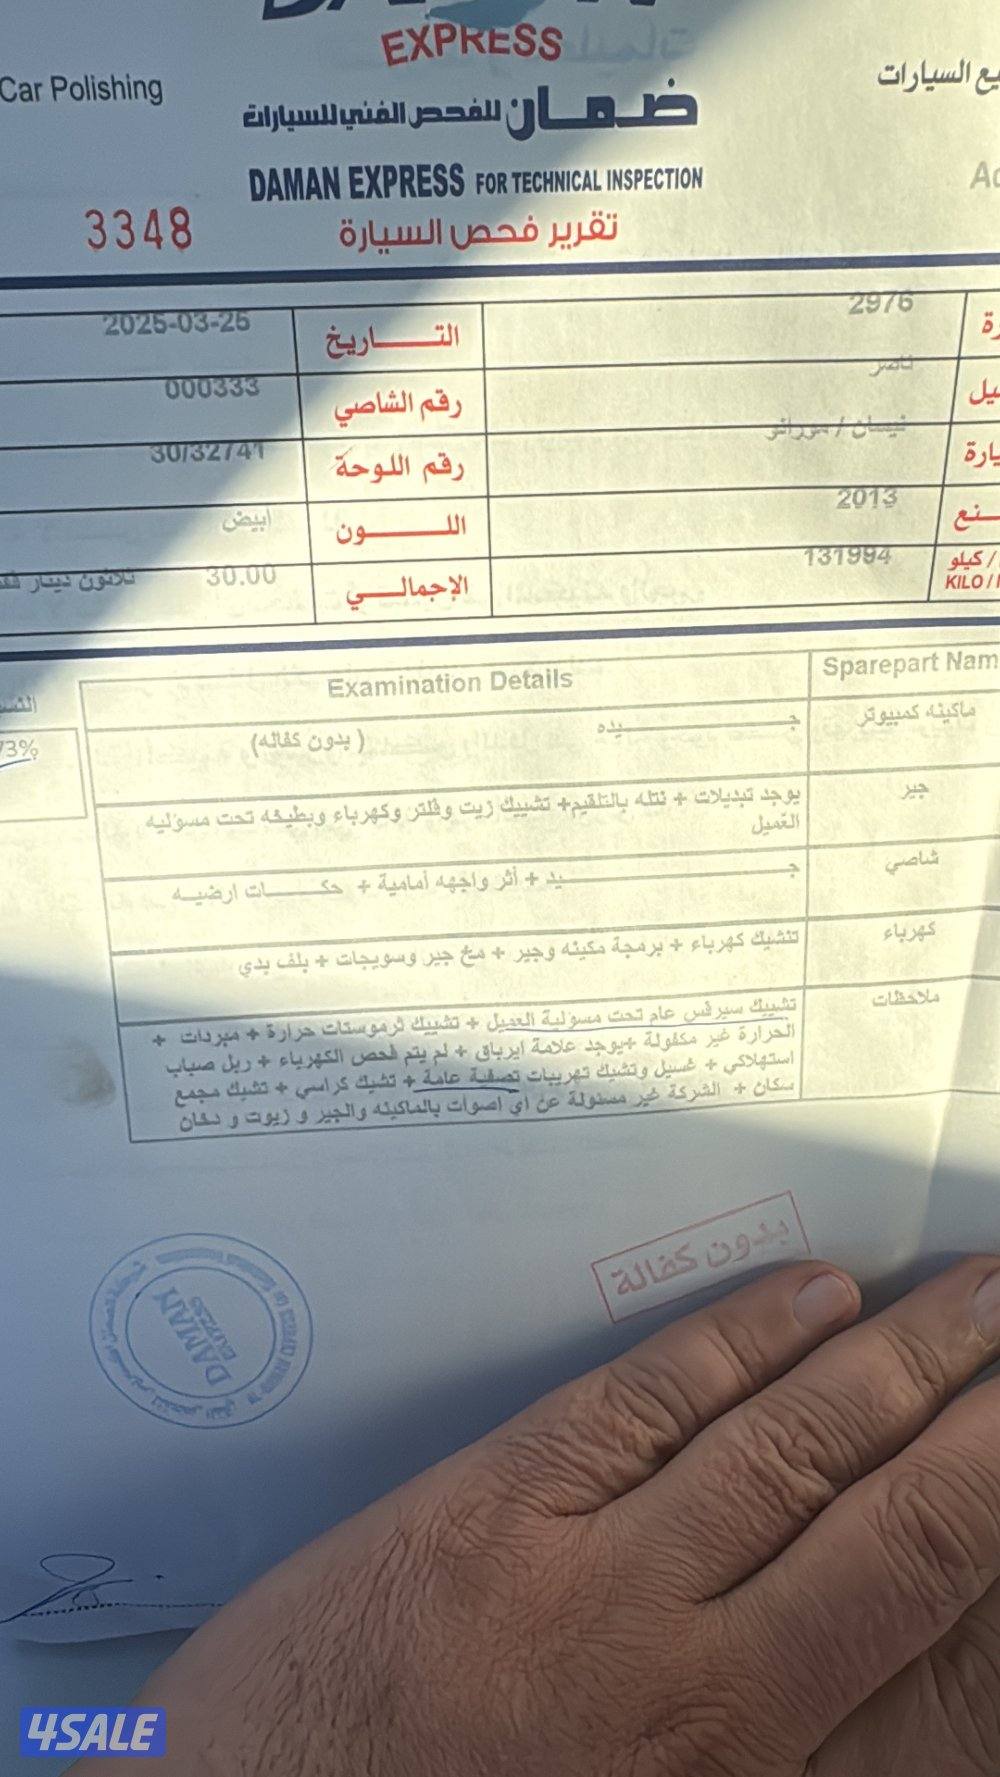 EXPRESS
Car Polishing
يع السيارات
ضمان للفحص الفني للسيارات
DAMAN EXPRESS FOR TECHNICAL INSPECTION
3348
تقرير فحص السيارة
2976
التـــاريخ 2025-03-25
ناصر
رقم الشاصي 000333
نيسان / مورانو
رقم اللوحة 30/32741
2013
اللـــون ابيض
131994
كيلو /
KILO /
الإجمالـــي 30.00 ثلاثون دينار
Sparepart Nam
Examination Details
ماكينه كمبيوتر
جـــــيده
(بدون كفاله)
73%
جير
يوجد تبديلات + نتله بالتلقيم+ تشييك زيت وفلتر وكهرباء وبطيخه تحت مسؤليه
العميل
شاصي
جـــــيد + أثر واجهه أمامية + حكـــات ارضيـه
كهرباء
تشيك كهرباء + برمجة مكينه وجير + مخ جير وسويجات + بلف بدي
ملاحظات
تشييك سيرفس عام تحت مسؤلية العميل + تشييك ثرموستات حرارة + مبردات +
الحرارة غير مكفولة +يوجد علامة ايرباق + لم يتم فحص الكهرباء + ربل صباب
استهلاكي + غسيل وتشيك تهريبات تصفية عامة + تشيك كراسي + تشيك مجمع
سكان + الشركة غير مسئولة عن أي اصوات بالماكينه والجير و زيوت و دخان
بدون كفالة
DAMAN
4SALE